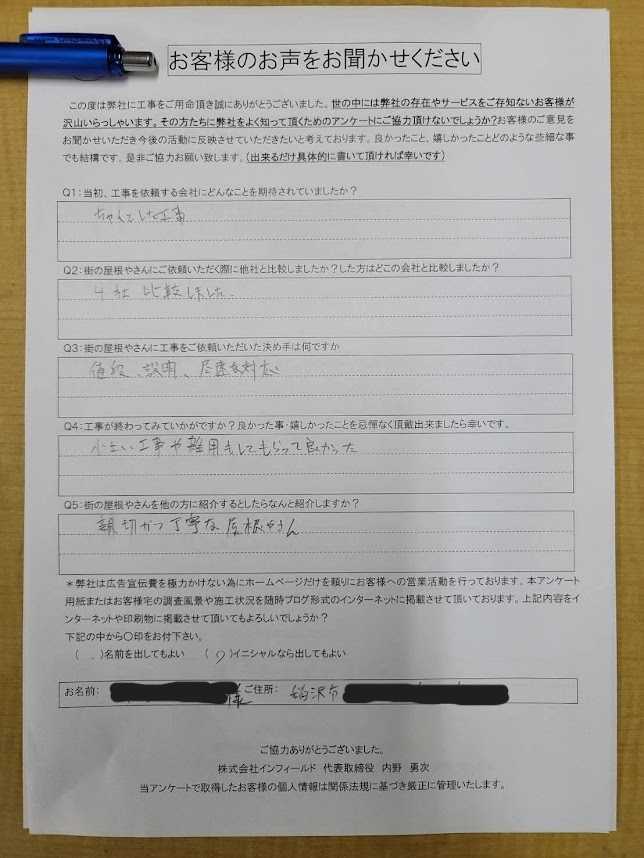 お客様のお声をお聞かせください
この度は弊社に工事をご用命頂き誠にありがとうございました。世の中には弊社の存在やサービスをご存知ないお客様が
沢山いらっしゃいます。その方たちに弊社をよく知って頂くためのアンケートにご協力頂けないでしょうか?お客様のご意見を
お聞かせいただき今後の活動に反映させていただきたいと考えております。良かったこと、嬉しかったことどのような些細な事
でも結構です。是非ご協力お願い致します。(出来るだけ具体的に書いて頂ければ幸いです)
Q1:当初、工事を依頼する会社にどんなことを期待されていましたか?
ちゃんとした工事
Q2:街の屋根やさんにご依頼いただく際に他社と比較しましたか?した方はどこの会社と比較しましたか?
4社 比較しました。
Q3:街の屋根やさんに工事をご依頼いただいた決め手は何ですか
値段、説明、尽速な対応
Q4:工事が終わってみていかがですか?良かった事・嬉しかったことを忌憚なく頂戴出来ましたら幸いです。
小さい工事や雑用もしてもらって良かった
Q5:街の屋根やさんを他の方に紹介するとしたらなんと紹介しますか?
親切かつ丁寧な屋根やさん
*弊社は広告宣伝費を極力かけない為にホームページだけを頼りにお客様への営業活動を行っております。本アンケート
用紙またはお客様宅の調査風景や施工状況を随時ブログ形式のインターネットに掲載させて頂いております。上記内容をイ
ンターネットや印刷物に掲載させて頂いてもよろしいでしょうか?
下記の中から〇印をお付下さい。
( )名前を出してもよい (○)イニシャルなら出してもよい
お名前: 様 ご住所: 稲沢市
ご協力ありがとうございました。
株式会社インフィールド 代表取締役 内野 勇次
当アンケートで取得したお客様の個人情報は関係法規に基づき厳正に管理いたします。